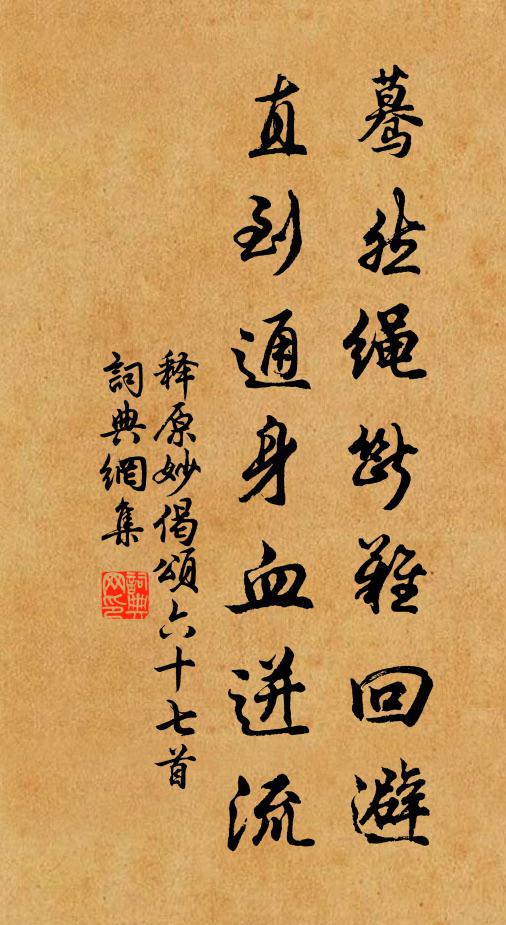 驀然繩斷難回避
直到通身血迸流
释原妙偈頌六十七首
詞典網集
詞典網印